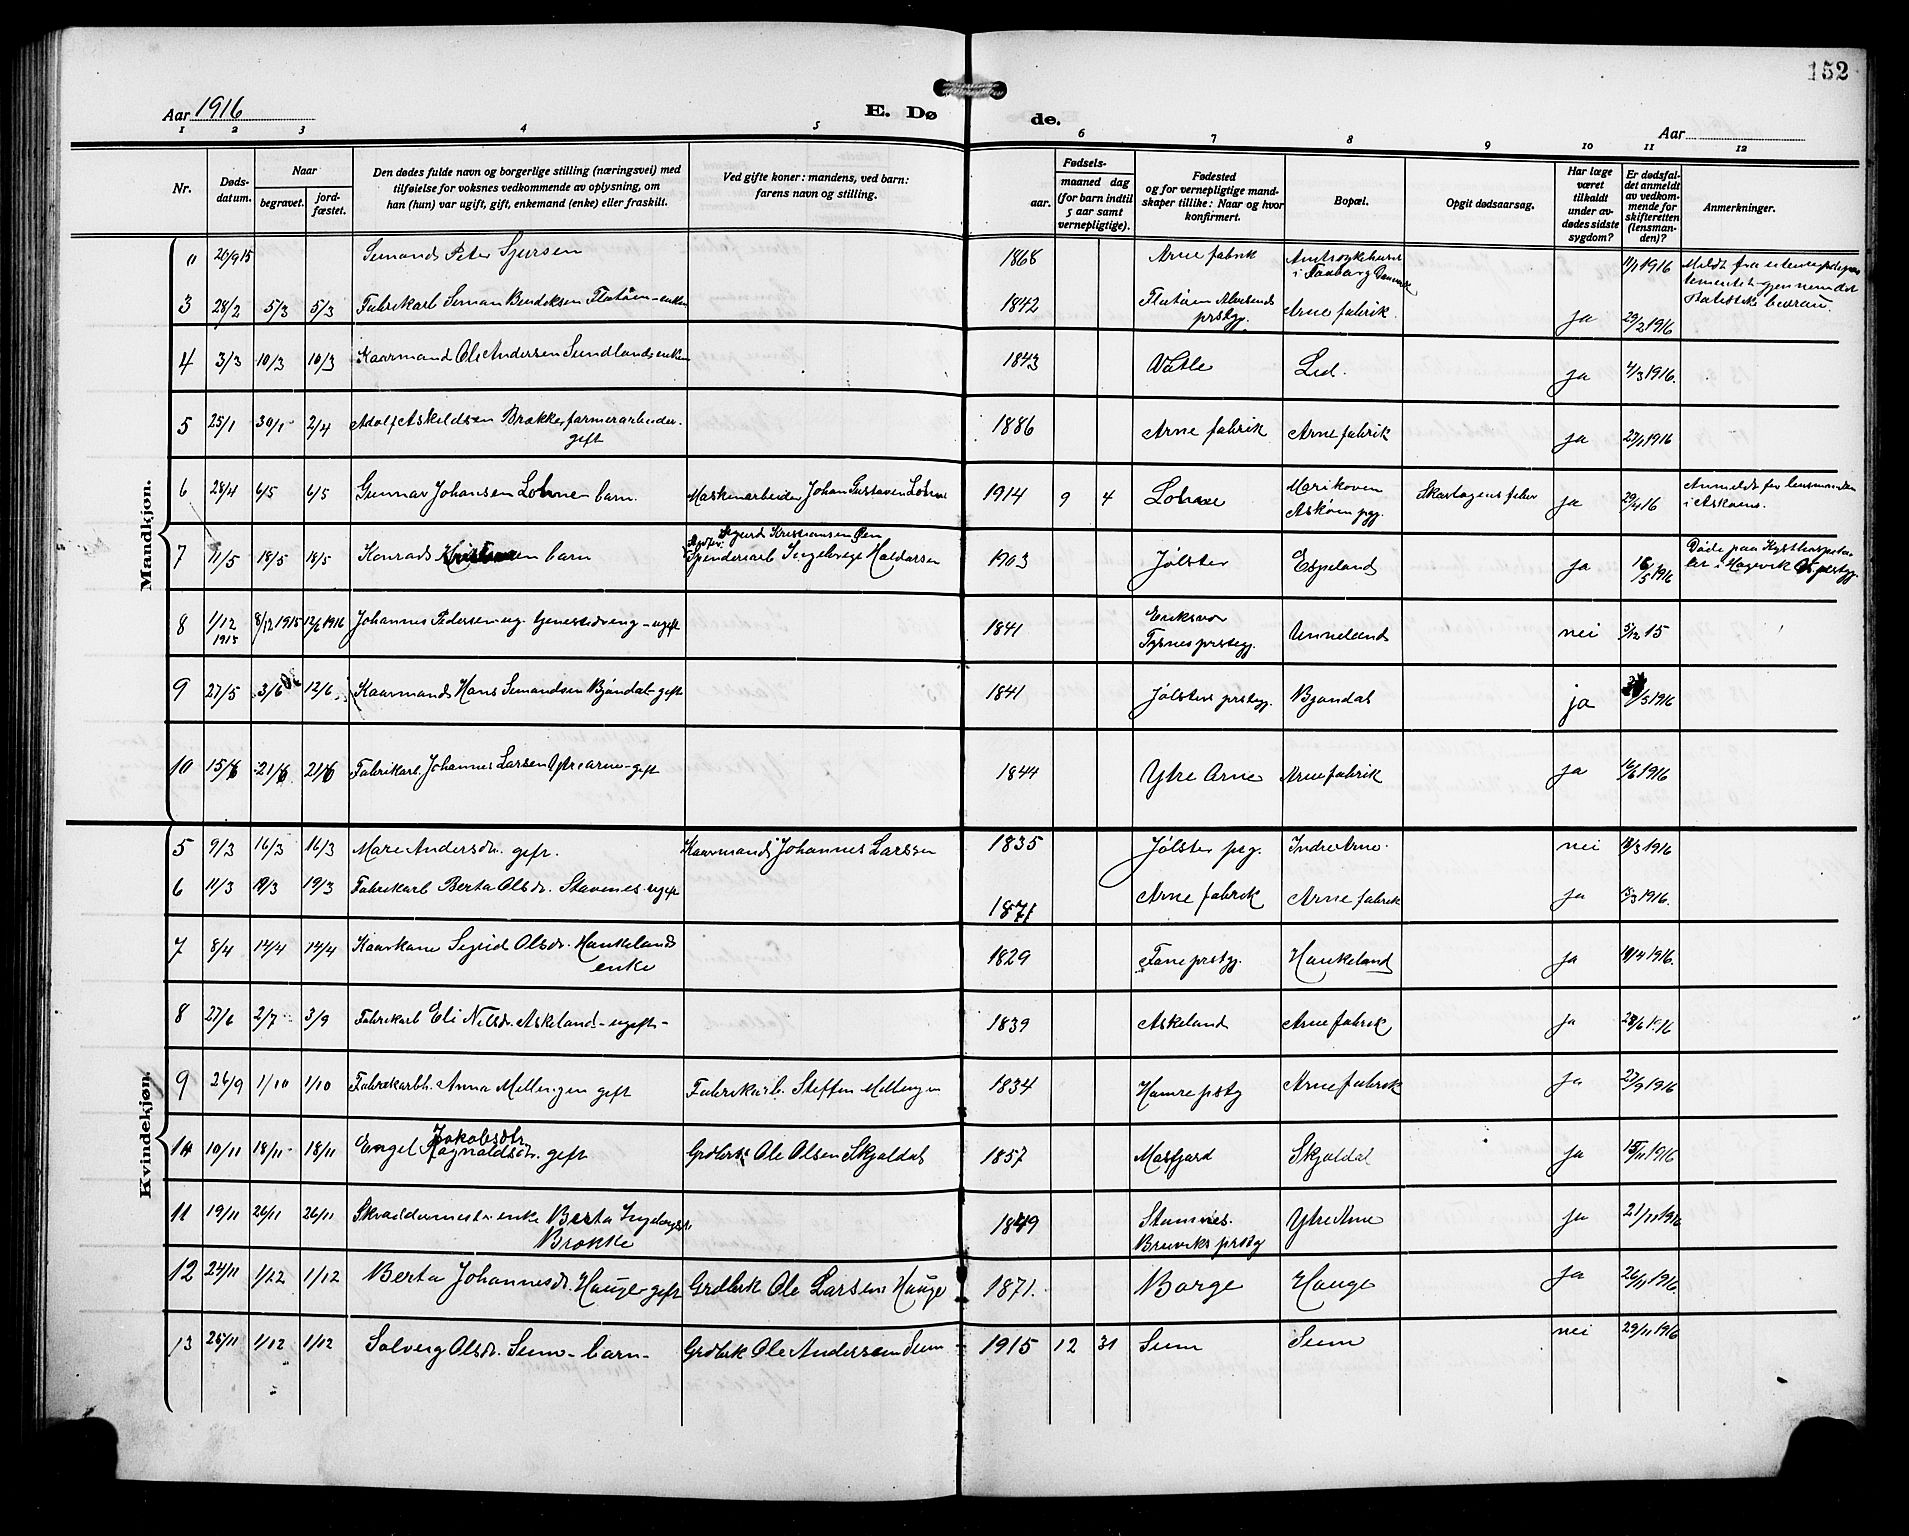 152
Aar 1916
E. Dø de.
Aar
1 2 3 4 5 6 7 8 9 10 11 12
Nr.
Døds-datum.
Naar
begravet.
jord-fæstet.
Den dødes fulde navn og borgerlige stilling (næringsvei) med
tilføielse for voksnes vedkommende av oplysning, om
han (hun) var ugift, gift, enkemand (enke) eller fraskilt.
Ved gifte koner: mandens, ved barn:
farens navn og stilling.
Fødsels-
aar. maaned dag
(for barn indtil
5 aar samt
vernepligtige).
Fødested
og for vernepligtige mand-
skaper tillike: Naar og hvor
konfirmert.
Bopæl.
Opgit dødsaarsag.
Har læge
været
tilkaldt
under av-
dødes sidste
sygdom?
Er dødsfal-
det anmeldt
av vedkom-
mende for
skifteretten
(lensman-
den)?
Anmerkninger.
Mandkjøn.
20/9 15 Simond Peter Sjursen 1868 Arne fabrik Amtssykehuset i Faaborg Danmark 11/1 1916
3 28/2 5/3 5/3 Fabrikarb Simon Bendiksen Flatøen - enkem 1842 Flatøen Alversunds prstgj. Arne fabrik. ja 29/2 1916
4 3/3 10/3 10/3 Kaarmand Ole Andersen Sundland enkem 1843 Vatle Lid. ja 4/3 1916.
5 25/1 30/1 2/4 Adolf Askildsen Brække farmerarbeider. gift 1886 Arne fabrik Arne fabrik ja 27/1 1916
6 28/4 6/5 6/5 Gunnar Johansen Lohne barn. Maskinarbeider Johan Gustaven Lohne 1914 9 4 Lohne Marikoven Askøen pgj. Skarlagensfeber ja 29/4 16 Anmeldt for lensmanden i Askøen.
7 11/5 18/5 18/5 Konrad barn Sigurd Kristiansen Øen Spinderiarb Ingeborg Haldorsen 1903 Jølster Espeland ja 16/5 1916 Døde paa Kysthospitalet i Hagevik Os prstgj.
8 1/12 1915 8/12 1915 12/6 1916 Johannes Pedersen ug. tjenestedreng - ugift 1841 Eriksvær Tysnes prstegj. Unneland nei 5/12 15
9 27/5 3/6 12/6 Kaarmand Hans Simondsen Bjøndal - gift 1841 Jølster prstgj. Bjøndal ja /5 1916
10 15/6 21/6 21/6 Fabrikarb. Johannes Larsen Ytrearne - gift 1844 Ytre Arne Arne fabrik ja 16/6 1916
Kvindekjøn.
5 9/3 16/3 16/3 Mari Andersdr. gift. Kaarmand Johannes Larsen 1835 Jølster prg. Indre Arne. nei /3 1916
6 11/3 19/3 19/3 Fabrikarb Berta Olsdr. Stavenes. ugift 1871 Arne fabrik Arne fabrik ja /3 1916.
7 8/4 14/4 14/4 Kaarkone Sigrid Olsdr. Haukeland enke 1829 Fane prstgj. Haukeland ja /4 1916.
8 27/6 2/7 3/9 Fabrikarb Eli Nilsdr. Askeland - ugift - 1839 Askeland Arne fabrik ja 28/6 1916
9 26/9 1/10 1/10 Fabrikarbh. Anna Mellingen gift Fabrikarb. Steffen Mellingen 1834 Hamre pstg Arne fabrik ja 27/9 1916
10 10/11 18/11 18/11 Engel Jakobsdtr Ragnaldsdr. gift Grdbrk Ole Olsen Skjoldal 1857 Masfjord Skjoldal ja 15/11 1916
11 19/11 26/11 26/11 Skræddermester enke Berta Ingebrigtsdr Brække 1849 Stamnes. Bruviks prstg Ytre Arne ja 21/11 1916
12 24/11 1/12 1/12 Berta Johannesdr. Hauge - gift Grdbrk Ole Larsen Hauge 1871. Borge Hauge ja 26/11 1916
13 25/11 1/12 1/12 Solveig Olsdr. Seim - barn - Grdbrk Ole Andersen Seim 1915 12 31 Seim Seim nei 29/11 1916